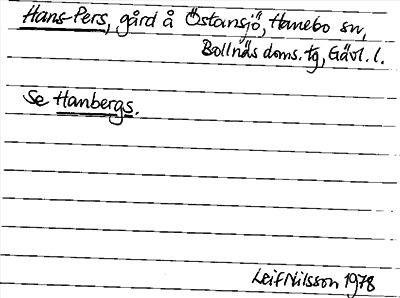 Hans-Pers, gård å Östansjö, Hanebo sn,
Bollnäs doms. tg, Gävl. l.
Se Hanbergs.
Leif Nilsson 1978